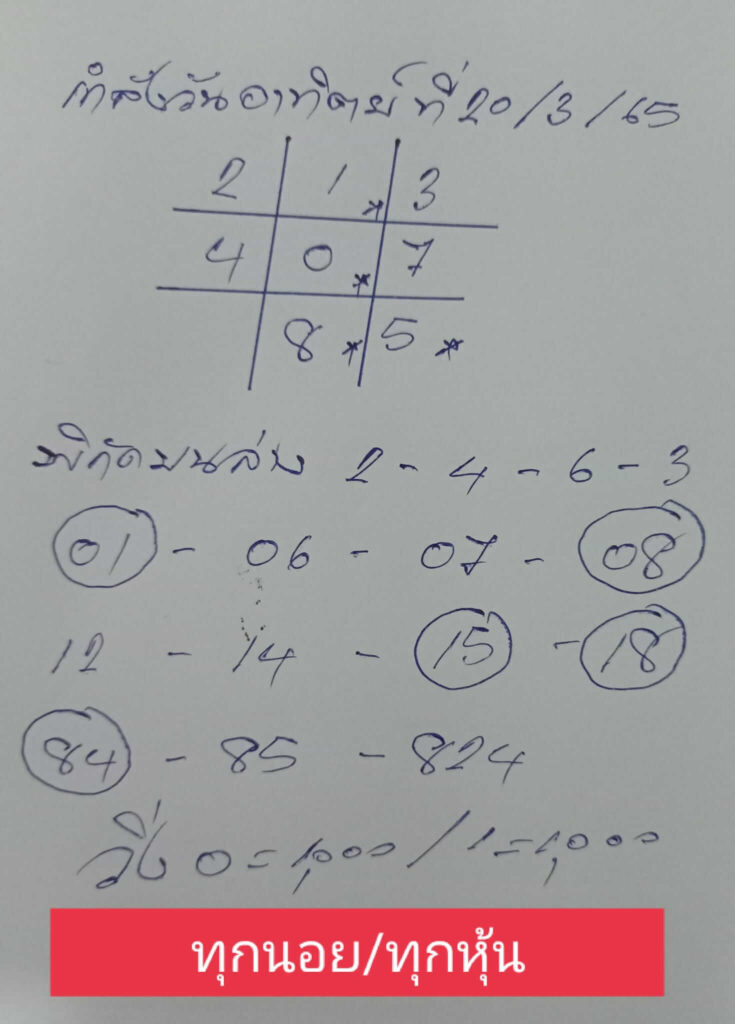 กำลังวันอาทิตย์ ที่ 20/3/65
2 1 * 3
4 0 * 7
8 * 5 *
พิกัดบนล่าง 2 - 4 - 6 - 3
01 - 06 - 07 - 08
12 - 14 - 15 - 18
84 - 85 - 824
วิ่ง 0 = 1,000 / 1 = 1,000
ทุกนอย/ทุกหุ้น